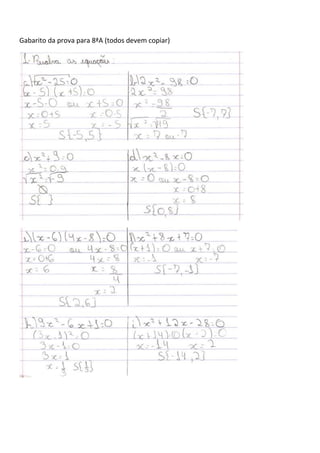 Gabarito da prova para 8ªA (todos devem copiar)
1. Resolva as equações:
a) x² - 25 = 0
(x - 5) (x + 5) = 0
x - 5 = 0 ou x + 5 = 0
x = 0 + 5 x = 0 - 5
x = 5 x = - 5
S{-5, 5}
b) 2x² - 98 = 0
2x² = 98
x² = 98
2
S{-7, 7}
√x² = √49
x = 7 ou - 7
c) x² + 9 = 0
x² = 0 - 9
S{ }
d) x² - 8x = 0
x (x - 8) = 0
x = 0 ou x - 8 = 0
x = 0 + 8
x = 8
S{0, 8}
(x - 6) (4x - 8) = 0
x - 6 = 0 ou 4x - 8 = 0
x = 0 + 6 4x = 8
x = 6 x = 8
4
x = 2
S{2, 6}
x² + 8x + 7 = 0
(x + 1) = 0 ou x + 7 = 0
x = - 1 x = - 7
S{-7, -1}
h) 9x² - 6x + 1 = 0
(3x - 1)² = 0
3x - 1 = 0
3x = 1
x = 1/3 S{1/3}
i) x² + 12x - 28 = 0
(x + 14) = 0 (x - 2) = 0
x = - 14 x = 2
S{-14, 2}